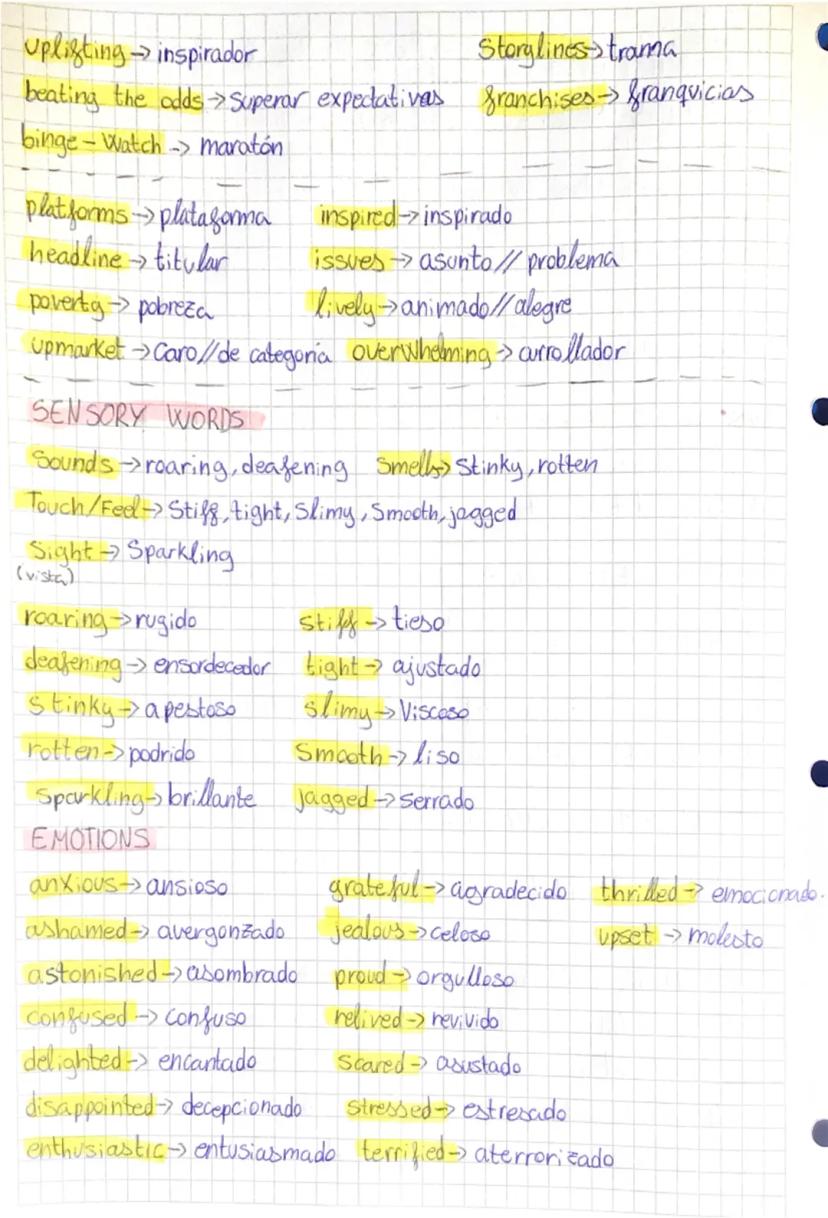 uplifting → inspirador    Storylines → trama
beating the odds → superar expectativas    franchises → franquicias
binge-Watch → maratón
platforms → plataforma    inspired → inspirado
headline → titular    issues → asunto // problema
poverty → pobreza    lively → animado // alegre
upmarket → Caro // de categoría    overwhelming → arrollador
SENSORY WORDS
Sounds → roaring, deafening    Smells → Stinky, rotten
Touch/Feel → Stiff, tight, Slimy, Smooth, jagged
Sight → Sparkling
(vista)
roaring → rugido    stiff → tieso
deafening → ensordecedor    tight → ajustado
Stinky → apestoso    slimy → Viscoso
rotten → podrido    Smooth → liso
Sparkling → brillante    jagged → serrado
EMOTIONS
anxious → ansioso    grateful → agradecido    thrilled → emocionado.
ashamed → avergonzado    jealous → celoso    upset → molesto
astonished → asombrado    proud → orgulloso
confused → confuso    relived → revivido
delighted → encantado    scared → asustado
disappointed → decepcionado    stressed → estresado
enthusiastic → entusiasmado    terrified → aterrorizado